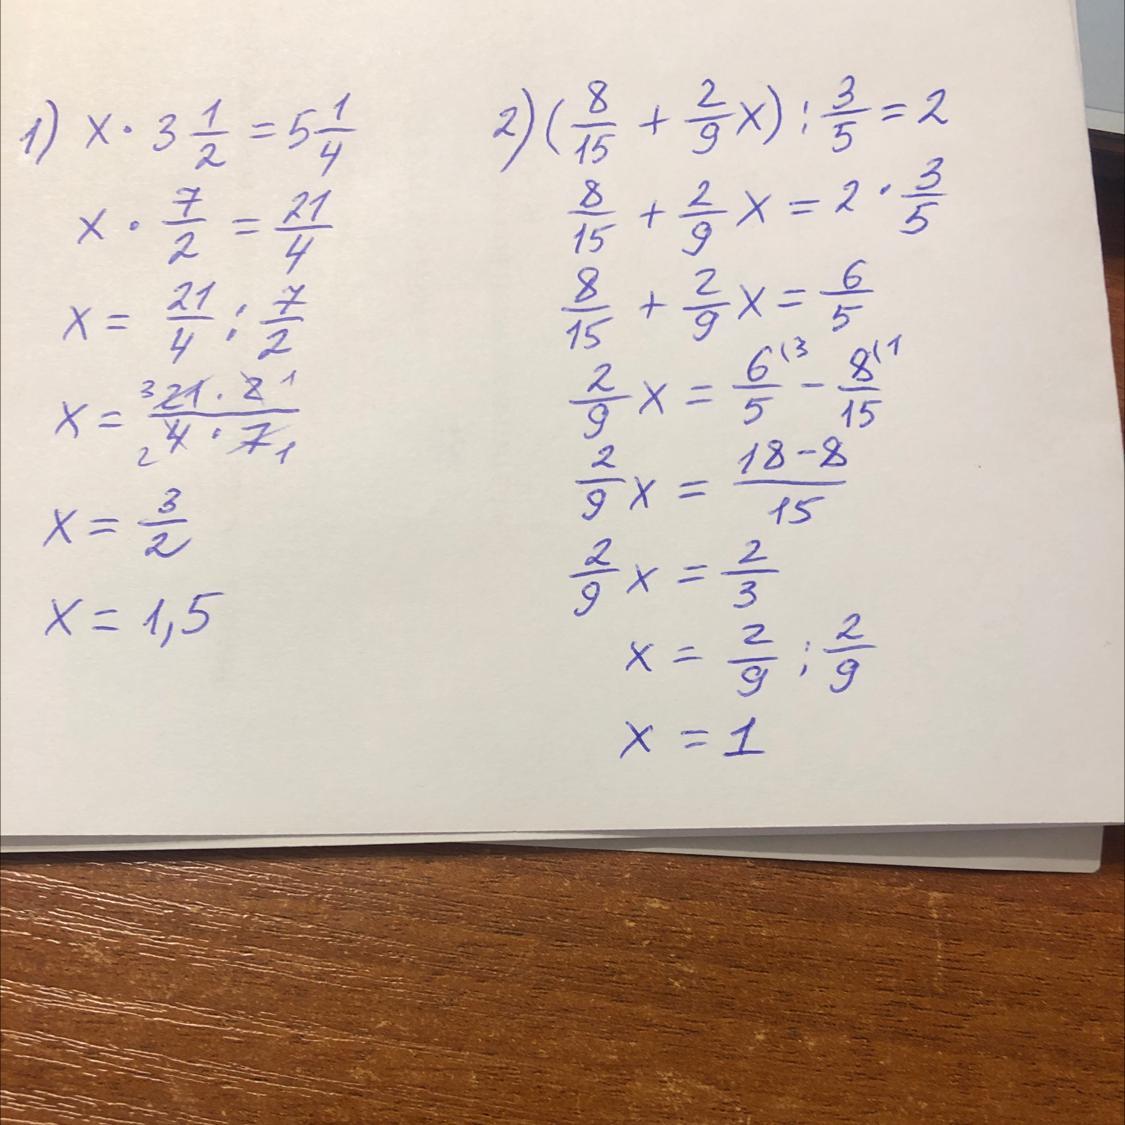 1) x · 3 1/2 = 5 1/4
x · 7/2 = 21/4
x = 21/4 : 7/2
x = ³21 · 2¹ / ₂4 · 7₁
x = 3/2
x = 1,5
2) (8/15 + 2/9 x) : 3/5 = 2
8/15 + 2/9 x = 2 · 3/5
8/15 + 2/9 x = 6/5
2/9 x = 6⁽³/5 - 8⁽¹/15
2/9 x = 18-8/15
2/9 x = 2/3
x = 2/9 : 2/9
x = 1